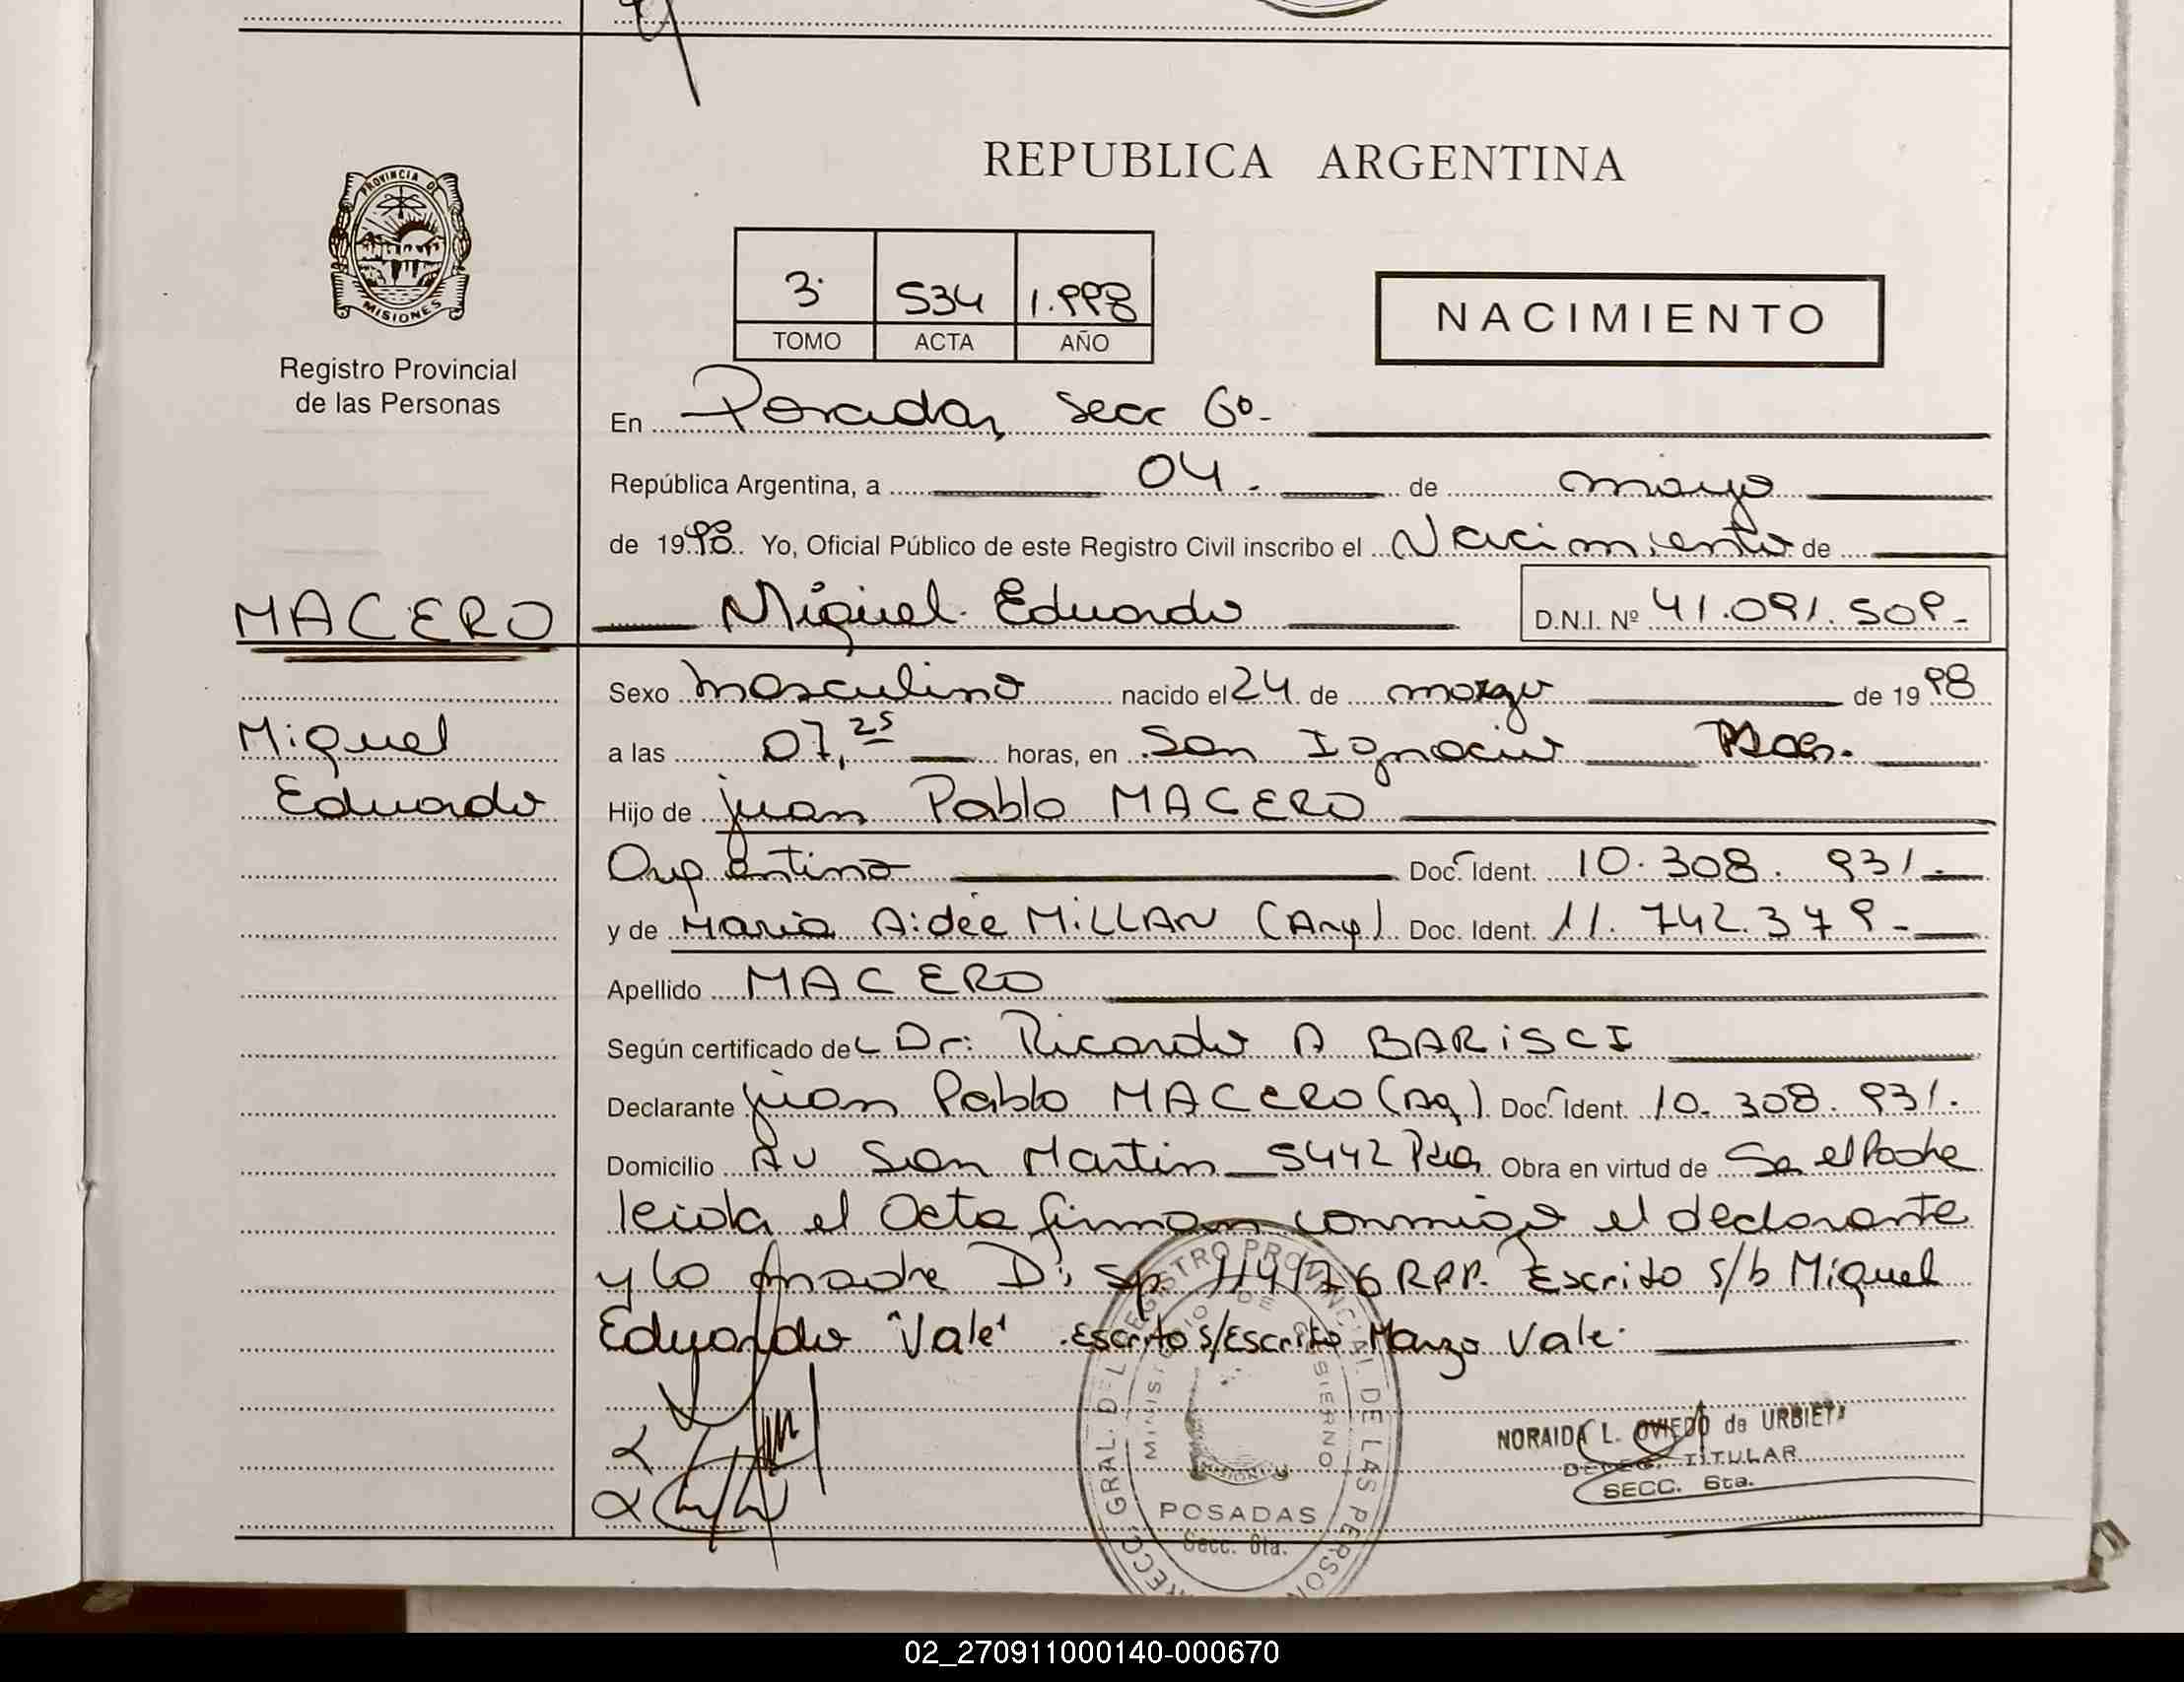 REPUBLICA ARGENTINA
PROVINCIA DE
MISIONES
Registro Provincial
de las Personas
3. 534 1.998
TOMO ACTA AÑO
NACIMIENTO
En Posadas, Secc 6º-
República Argentina, a 04. de mayo
de 1998. Yo, Oficial Público de este Registro Civil inscribo el Nacimiento de
MACERO
Miguel Eduardo D.N.I. Nº 41.091.509-
Miguel
Eduardo
Sexo masculino nacido el 24 de marzo de 1998
a las 07,25 horas, en San Ignacio Mnes.
Hijo de Juan Pablo MACERO
Argentino Doc. Ident. 10.308.931.-
y de Maria Aidée MiLLAN (Arg) Doc. Ident. 11.742.379-
Apellido MACERO
Según certificado del Dr: Ricardo A BARiSCI
Declarante Juan Pablo MACERO (Ag.) Doc. Ident. 10.308.931.
Domicilio Av San Martin 5442 Pdas Obra en virtud de Se el Padre
leida el Acta firman conmigo el declarante
y la madre Di Sp. 114/76 RPP. Escrito s/b Miguel
Eduardo "Vale" . Escrito s/Escrito Marzo Vale.
DEL REGISTRO PROVINCIAL DE LAS PERSON
MINISTERIO DE GOBIERNO
MISIONES
POSADAS
Secc. 6ta.
NORAIDA L. OVIEDO de URBIETA
DELEG. TITULAR
SECC. 6ta.
02_270911000140-000670